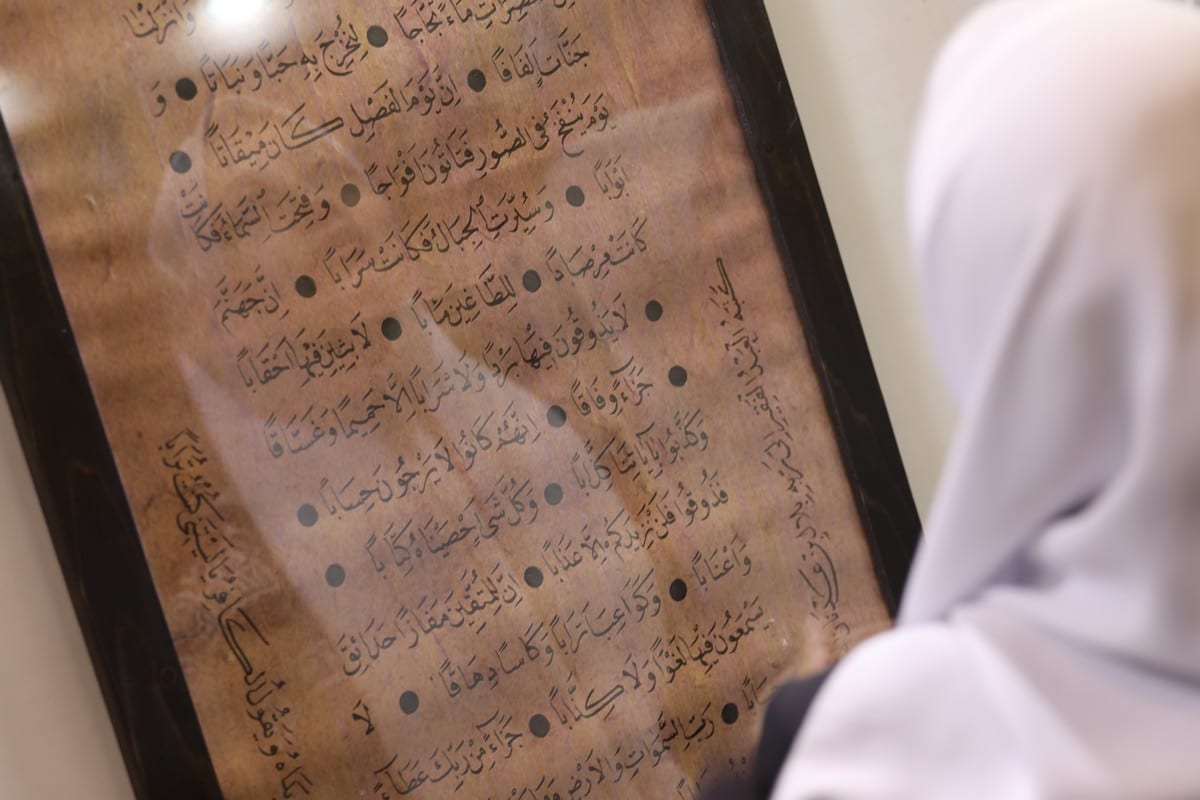 وَأَنزَلْنَا
مِنَ الْمُعْصِرَاتِ مَاءً ثَجَّاجًا ● لِنُخْرِجَ بِهِ حَبًّا وَنَبَاتًا ● وَ
جَنَّاتٍ أَلْفَافًا ● إِنَّ يَوْمَ الْفَصْلِ كَانَ مِيقَاتًا ●
يَوْمَ يُنْفَخُ فِى الصُّورِ فَتَأْتُونَ أَفْوَاجًا ● وَفُتِحَتِ السَّمَاءُ فَكَانَتْ
أَبْوَابًا ● وَسُيِّرَتِ الْجِبَالُ فَكَانَتْ سَرَابًا ● إِنَّ جَهَنَّمَ
كَانَتْ مِرْصَادًا ● لِلطَّاغِينَ مَآبًا ● لَابِثِينَ فِيهَا أَحْقَابًا
● لَا يَذُوقُونَ فِيهَا بَرْدًا وَلَا شَرَابًا إِلَّا حَمِيمًا وَغَسَّاقًا
● جَزَاءً وِفَاقًا ● إِنَّهُمْ كَانُوا لَا يَرْجُونَ حِسَابًا ●
وَكَذَّبُوا بِآيَاتِنَا كِذَّابًا ● وَكُلَّ شَىْءٍ أَحْصَيْنَاهُ كِتَابًا ●
فَذُوقُوا فَلَنْ نَزِيدَكُمْ إِلَّا عَذَابًا ● إِنَّ لِلْمُتَّقِينَ مَفَازًا حَدَائِقَ
وَأَعْنَابًا ● وَكَوَاعِبَ أَتْرَابًا وَكَأْسًا دِهَاقًا ● لَا
يَسْمَعُونَ فِيهَا لَغْوًا وَلَا كِذَّابًا ● جَزَاءً مِنْ رَبِّكَ عَطَاءً
حِسَابًا ● رَبِّ السَّمٰوَاتِ وَالْأَرْضِ
كتبه العبد الفقير الى
يَدَاهُ وَيَقُولُ الْكَافِرُ يَا لَيْتَنِى كُنْتُ تُرَابًا